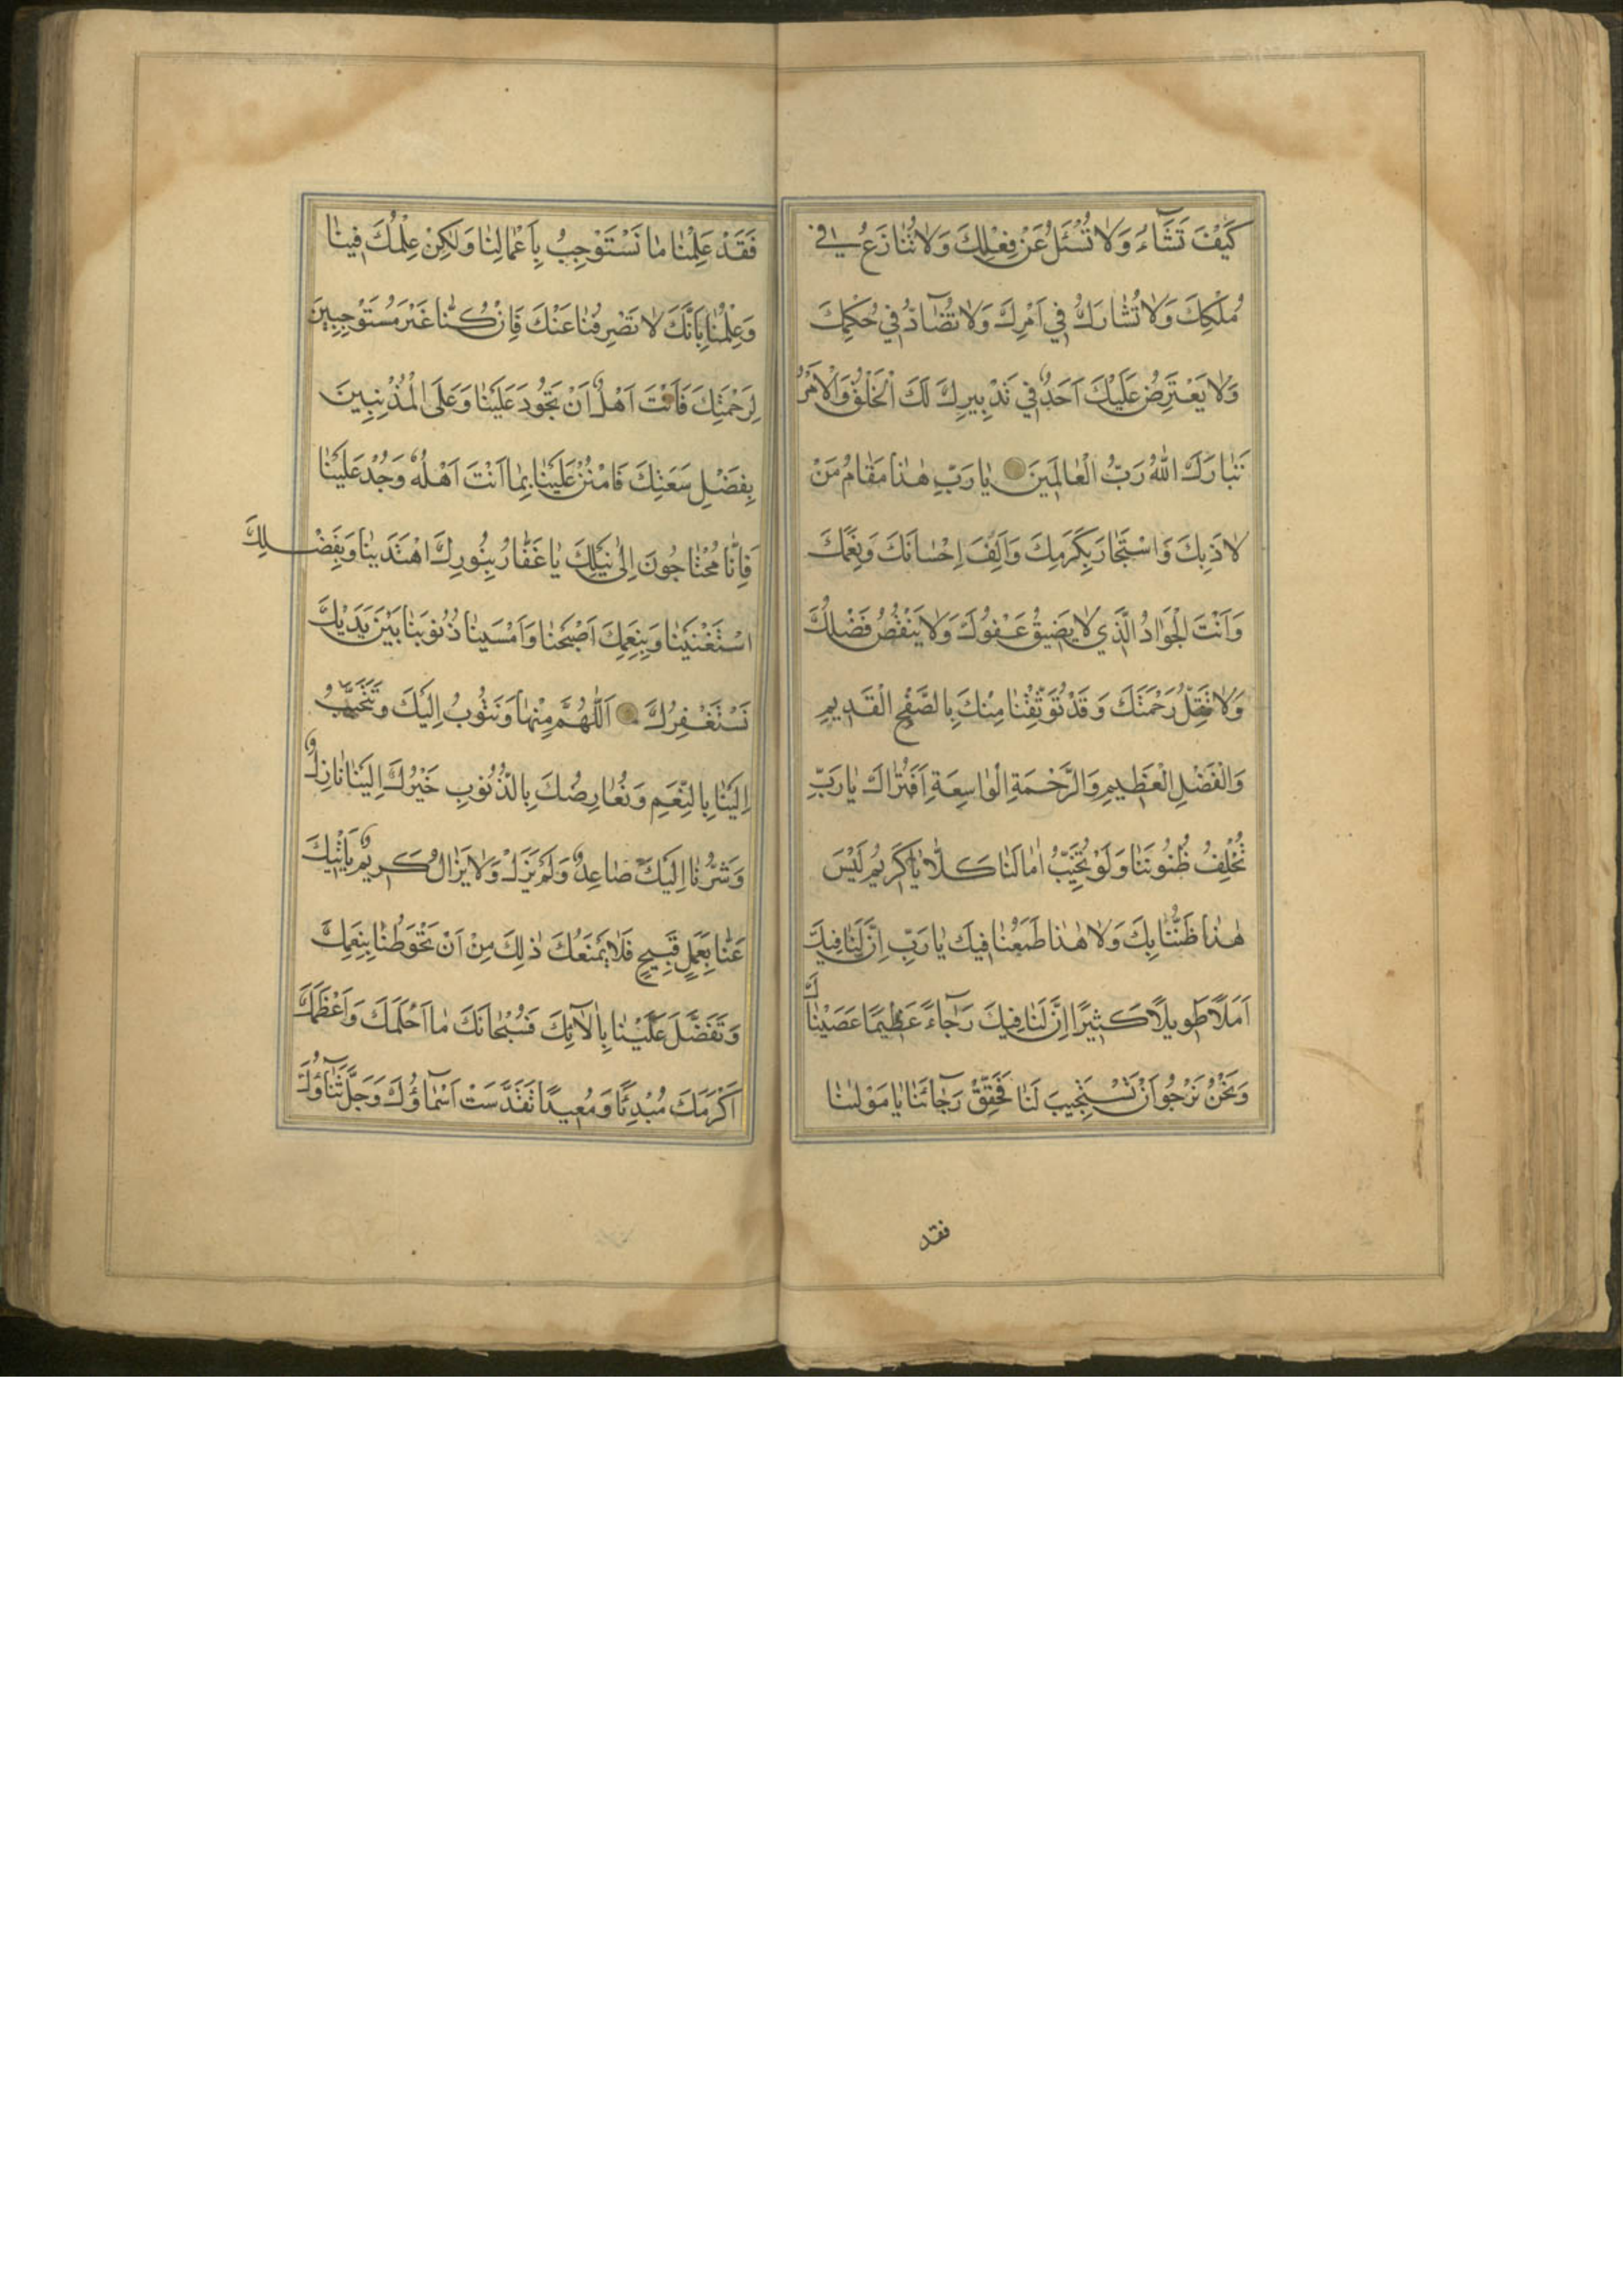 كَيْفَ تَشَآءُ وَلا تُسْئَلُ عَنْ فِعْلِكَ وَلا تُنازَعُ في
مُلْكِكَ وَلا تُشارَكُ في اَمْرِكَ وَلا تُضآدُّ في حُكْمِكَ
وَلا يَعْتَرِضُ عَلَيْكَ اَحَدٌ في تَدْبيرِكَ لَكَ الْخَلْقُ وَالْاَمْرُ
تَبارَكَ اللهُ رَبُّ الْعالَمينَ يا رَبِّ هذا مَقامُ مَنْ
لاذَ بِكَ وَاسْتَجارَ بِكَرَمِكَ وَاَلِفَ اِحْسانَكَ وَنِعَمَكَ
وَاَنْتَ الْجَوادُ الَّذي لا يَضيقُ عَفْوُكَ وَلا يَنْقُصُ فَضْلُكَ
وَلا تَقِلُّ رَحْمَتُكَ وَقَدْ تَوَثَّقْنا مِنْكَ بِالصَّفْحِ الْقَديمِ
وَالْفَضْلِ الْعَظيمِ وَالرَّحْمَةِ الْواسِعَةِ اَفَتُراكَ يا رَبِّ
تُخْلِفُ ظُنُونَنا وَلَوْ تُخَيِّبُ امالَنا كَلّا يا كَريمُ لَيْسَ
هذا ظَنُّنا بِكَ وَلا هذا طَمَعُنا فيكَ يا رَبِّ اِنَّ لَنا فيكَ
اَمَلًا طَويلًا كَثيرًا اِنَّ لَنا فيكَ رَجآءً عَظيمًا عَصَيْناكَ
وَنَحْنُ نَرْجُو اَنْ تَسْتَجيبَ لَنا فَحَقِّقْ رَجآئَنا يا مَوْلينا
فقد
فَقَدْ عَلِمْنا ما نَسْتَوْجِبُ بِاَعْمالِنا وَلكِنْ عِلْمُكَ فينا
وَعِلْمُنا بِاَنَّكَ لا تَصْرِفُنا عَنْكَ فَاِنْ كُنّا غَيْرَ مُسْتَوْجِبينَ
لِرَحْمَتِكَ فَاَنْتَ اَهْلٌ اَنْ تَجُودَ عَلَيْنا وَعَلَى الْمُذْنِبينَ
بِفَضْلِ سَعَتِكَ فَامْنُنْ عَلَيْنا بِما اَنْتَ اَهْلُهُ وَجُدْ عَلَيْنا
فَاِنّا مُحْتاجُونَ اِلى نَيْلِكَ يا غَفّارُ بِنُورِكَ اهْتَدَيْنا وَبِفَضْلِكَ
اسْتَغْنَيْنا وَبِنِعَمِكَ اَصْبَحْنا وَاَمْسَيْنا ذُنُوبَنا بَيْنَ يَدَيْكَ
نَسْتَغْفِرُكَ اَللّهُمَّ مِنْها وَنَتُوبُ اِلَيْكَ وَتَتَحَبَّبُ
اِلَيْنا بِالنِّعَمِ وَنُعارِضُكَ بِالذُّنُوبِ خَيْرُكَ اِلَيْنا نازِلٌ
وَشَرُّنا اِلَيْكَ صاعِدٌ وَلَمْ يَزَلْ وَلا يَزالُ كَريمٌ يَاْتيكَ
عَنّا بِعَمَلٍ قَبيحٍ فَلا يَمْنَعُكَ ذلِكَ مِنْ اَنْ تَحُوطَنا بِنِعَمِكَ
وَتَفَضَّلَ عَلَيْنا بِآلائِكَ فَسُبْحانَكَ ما اَحْلَمَكَ وَاَعْظَمَكَ
اَكْرَمَكَ مُبْدِئًا وَمُعيدًا تَقَدَّسَتْ اَسْمآؤُكَ وَجَلَّ ثَنآؤُكَ